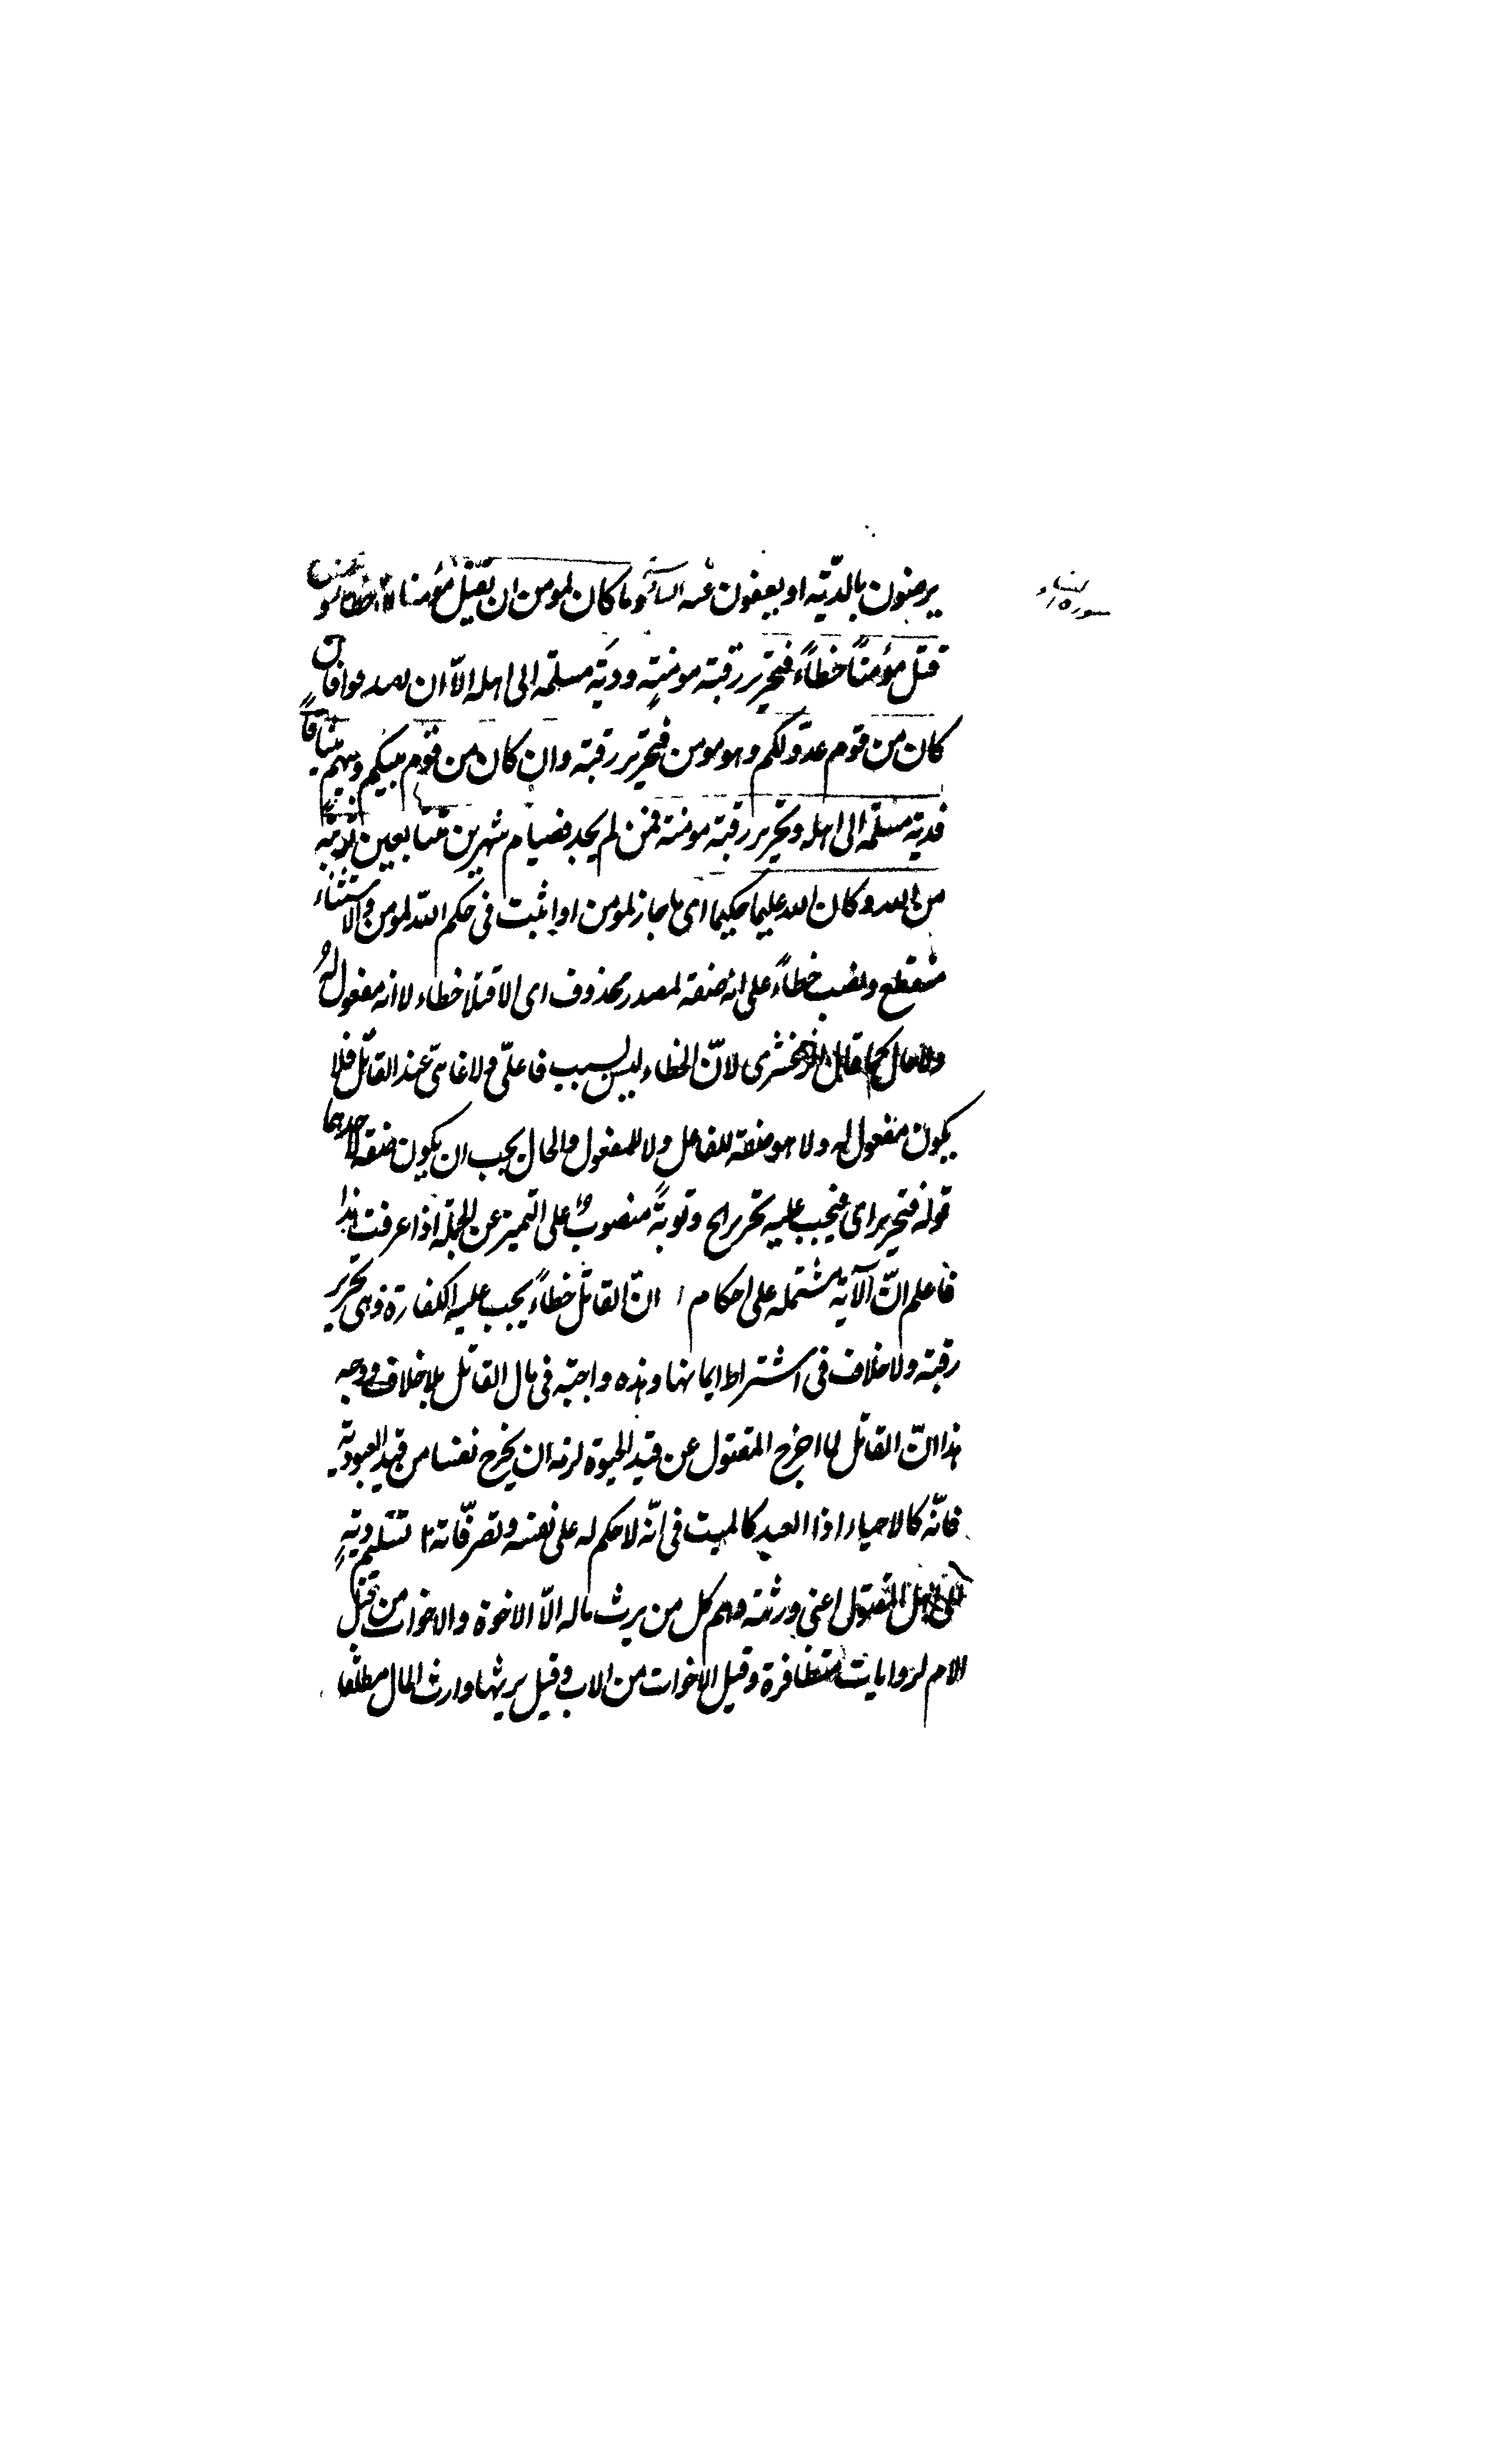 سورة النساء
يرضون بالدّية او يعفون عنه الثالثة وما كان لمومن ان يقتل مؤمنا الا خطاء ومن
قتل مؤمنًا خطاءً فتحرير رقبة مومنةٍ ودية مسلمة الى اهله الّا ان يصدقوا فان
كان من قوم عدوّ لكم وهو مومن فتحرير رقبة وان كان من قوم بينكم وبينهم ميثاقٌ
فدية مسلّمة الى اهله وتحرير رقبة مومنة فمن لم يجد فصيام شهرين متتابعين توبة
من الله وكان الله عليما حكيما اى ما جاز لمومن او ما ثبت فى حكم الله لمومن والاستثناء
منقطع ونصب خطاءً على انه صفة لمصدر محذوف اى الا قتلا خطاء لا انه مفعول لهُ
ولا حال كما قال الزمخشرى لانّ الخطاء ليس بسبب فاعلىّ ولا غائىّ عند القاتل فلا
يكون مفعول له ولا هو صفة للفاعل ولا للمفعول والحال يجب ان يكون صفة لاحدهما
قوله فتحرير اى فيجب عليه تحرير الخ وتوبةً منصوبٌ على التميز عن الجملة اذا عرفت هذا
فاعلم انّ الآية مشتملة على احكام ١ انّ القاتل خطاءً يجب عليه الكفارة وهى تحرير
رقبة ولا خلاف فى اشتراط ايمانها وهذه واجبة فى مال القاتل بلا خلاف ووجه
هذا انّ القاتل لما اخرج المقتول عن قيد الحيوة لزمه ان يخرج نفسا من قيد العبودية
فانّه كالاحياء اذ العبد كالميت فى انّه لا حكم له على نفسه وتصرّفاته ٢ تسليم ديةٍ
الى اهل المقتول اعنى ورثته وهم كل من يرث ماله الّا الاخوة والاخوات من قبل
الام لروايات متظافرة وقيل الاخوات من الاب وقيل يرثها وارث المال مطلقا